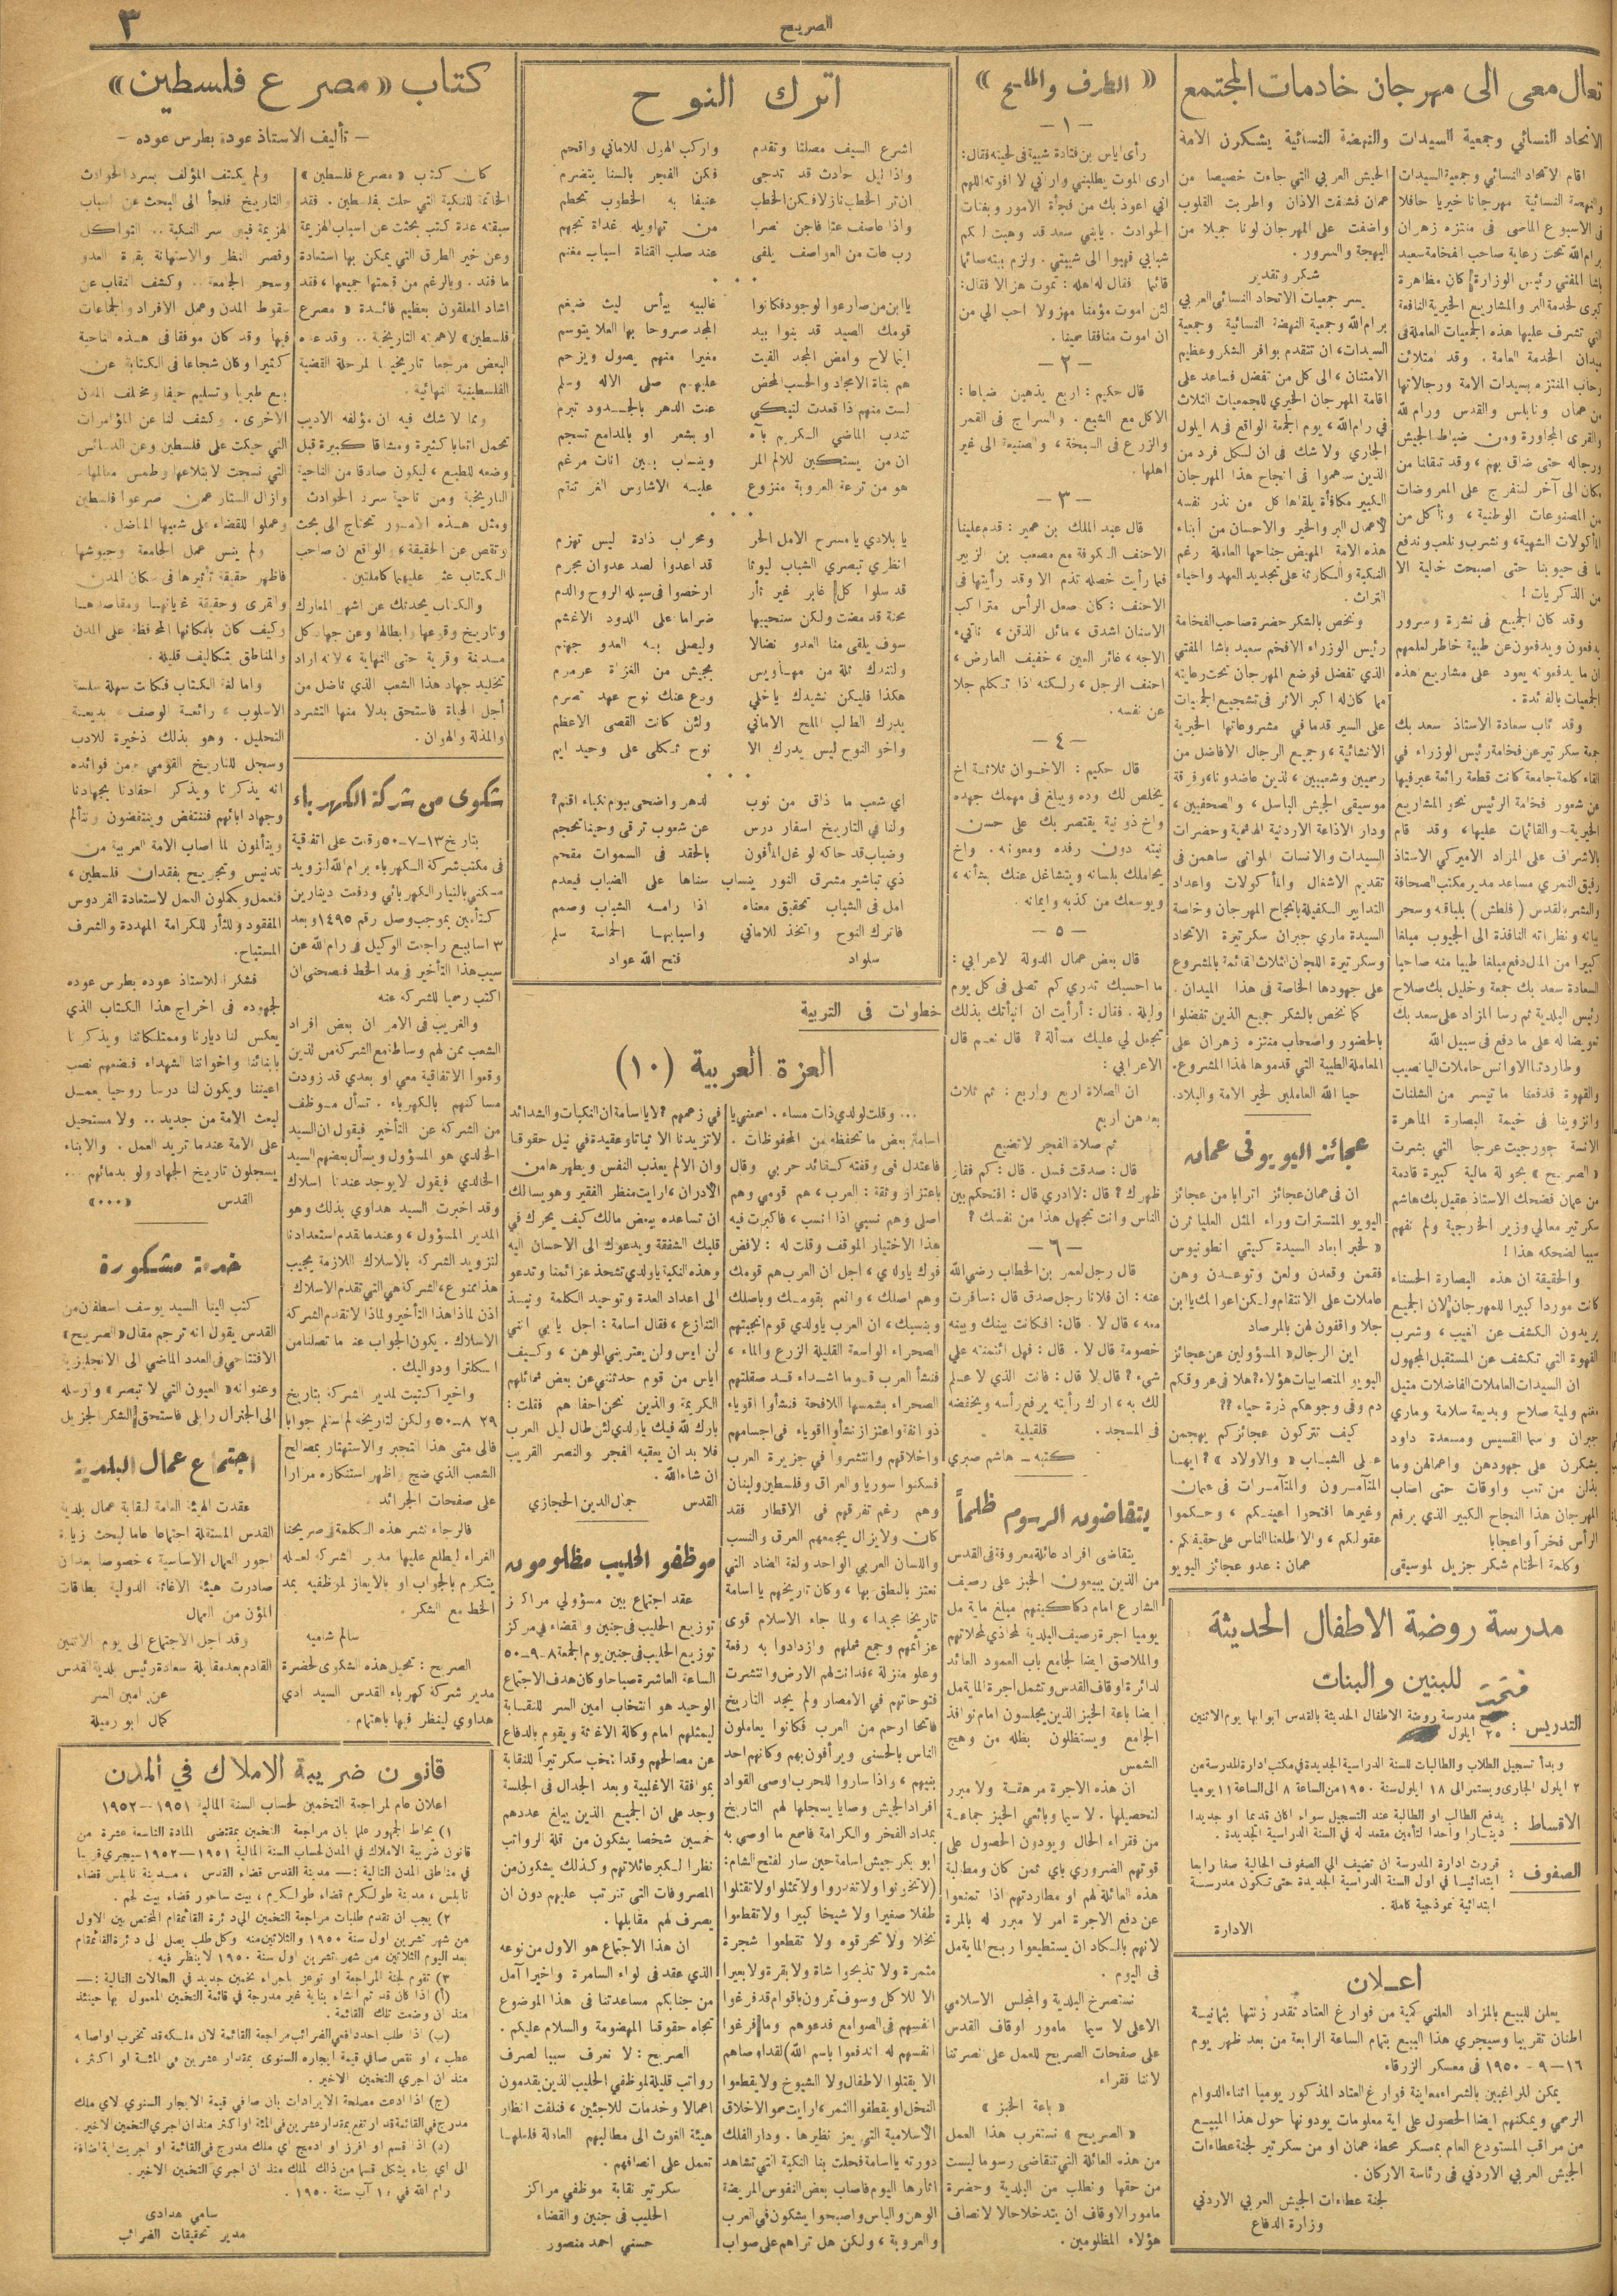 الصريح
٣
تعال معي الى مهرجان خادمات المجتمع
الاتحاد النسائي وجمعية السيدات والنهضة النسائية يشكرون الامة
اقام الاتحاد النسائي وجمعية السيدات
والنهضة النسائية مهرجانا خيريا حافلا
في الاسبوع الماضي في منتزه زهران
برام الله تحت رعاية صاحب الفخامة سعيد
باشا المفتي رئيس الوزارة كان مظاهرة
كبرى لخدمة البر والمشاريع الخيرية النافعة
التي تشرف عليها هذه الجمعيات العاملة في
ميدان الخدمة العامة . وقد امتلأت
رحاب المنتزه بسيدات الامة ورجالاتها
من عمان ونابلس والقدس ورام الله
والقرى المجاورة ومن ضباط الجيش
ورجاله حتى ضاق بهم ، وقد تنقلنا من
مكان الى آخر لنتفرج على المعروضات
من المصنوعات الوطنية ، ونأكل من
المأكولات الشهية ، ونشرب ونلعب وندفع
ما في جيوبنا حتى اصبحت خالية الا
من الذكريات !
وقد كان الجميع في نشرة وسرور
يدفعون ويدفعون عن طيبة خاطر لعلمهم
ان ما يدفعونه يعود على مشاريع هذه
الجمعيات بالفائدة .
وقد ناب سعادة الاستاذ سعد بك
جمعة سكرتير عن فخامة رئيس الوزراء في
القاء كلمة جامعة كانت قطعة رائعة عبر فيها
عن شعور فخامة الرئيس نحو المشاريع
الخيرية والقائمات عليها ، وقد قام
بالاشراف على المزاد الاميركي الاستاذ
رفيق النمري مساعد مدير مكتب الصحافة
والنشر بالقدس ( فلطش ) بلباقته وسحر
بيانه ونظراته النافذة الى الجيوب مبلغا
كبيرا من المال دفع مبلغا طيبا منه صاحبا
السعادة سعد بك جمعة وخليل بك صلاح
رئيس البلدية ثم رسا المزاد على سعد بك
تعويضا له على ما دفع في سبيل الله
وطاردتنا الاوانس حاملات اليانصيب
والقهوة فدفعنا ما تيسر من الشلنات
وانزوينا في خيمة البصارة الماهرة
الانسة جورجيت عرجا التي بشرت
« الصريح » بحولة مالية كبيرة قادمة
من عمان فضحك الاستاذ عقيل بك هاشم
سكرتير معالي وزير الخارجية ولم نفهم
سببا لضحكه هذا !
والحقيقة ان هذه البصارة الحسناء
كانت موردا كبيرا للمهرجان لان الجميع
يريدون الكشف عن الغيب ، وشرب
القهوة التي تكشف عن المستقبل المجهول
ان السيدات العاملات الفاضلات مثيل
مغنم ولمية صلاح وبديعة سلامة وماري
جبران وسيما القسيس ومسعدة داود
يشكرن على جهودهن واعمالهن وما
بذلن من تعب واوقات حتى اصاب
المهرجان هذا النجاح الكبير الذي يرفع
الرأس فخراً واعجابا
وكلمة الختام شكر جزيل لموسيقى
الجيش العربي التي جاءت خصيصا من
عمان فشنفت الاذان واطربت القلوب
واضفت على المهرجان لونا جميلا من
البهجة والسرور .
شكر وتقدير
يسر جمعيات الاتحاد النسائي العربي
برام الله وجمعية النهضة النسائية وجمعية
السيدات، ان تتقدم بوافر الشكر وعظيم
الامتنان ، الى كل من تفضل فساعد على
اقامة المهرجان الخيري للجمعيات الثلاث
في رام الله ، يوم الجمعة الواقع في ٨ ايلول
الجاري ولا شك في ان لكل فرد من
الذين ساهموا في انجاح هذا المهرجان
الكبير مكافأة يلقاها كل من نذر نفسه
لأعمال البر والخير والاحسان من أبناء
هذه الامة المهيض جناحها العاملة رغم
النكبة والكارثة على تجديد العهد واحياء
التراث .
ونخص بالشكر حضرة صاحب الفخامة
رئيس الوزراء الافخم سعيد باشا المفتي
الذي تفضل فوضع المهرجان تحت رعايته
مما كان له اكبر الاثر في تشجيع الجمعيات
على السير قدما في مشروعاتها الخيرية
الانشائية ، وجميع الرجال الافاضل من
رسميين وشعبيين ، الذين عاضدونا ، وفرقة
موسيقى الجيش الباسل ، والصحفيين ،
ودار الاذاعة الاردنية الهاشمية وحضرات
السيدات والانسات اللواتي ساهمن في
تقديم الاشغال والمأكولات واعداد
التدابير الكفيلة بانجاح المهرجان وخاصة
السيدة ماري جبران سكرتيرة الاتحاد
وسكرتيرة اللجان الثلاث القائمة بالمشروع
على جهودها الخاصة في هذا الميدان .
كما نخص بالشكر جميع الذين تفضلوا
بالحضور واصحاب منتزه زهران على
المعاملة الطيبة التي قدموها لهذا المشروع.
حيا الله العاملين لخير الامة والبلاد.
عجائز اليويو في عمان
ان في عمان عجائز اترابا من عجائز
اليويو المتسترات وراء المثل العليا ثرن
« لخبر ابعاد السيدة كيتي انطونيوس
فقمن وقعدن ولعن وتوعدن وهن
عاملات على الانتقام ولكن اعوانك يا ابن
جلا واقفون لهن بالمرصاد
اين الرجال « المسؤولين عن عجائز
اليويو المتصابيات هؤلاء ؟ هلا في عروقكم
دم وفي وجوهكم ذرة حياء ؟؟
كيف تتركون عجائزكم يهجمن
على الشباب « والاولاد » ؟ ايها
المتآمرون والمتآمرات في عمان
وغيرها افتحوا اعينكم ، وحكموا
عقولكم ، والا طلعنا الناس على حقيقتكم .
عمان : عدو عجائز اليويو
مدرسة روضة الاطفال الحديثة
للبنين والبنات
فتحت
التدريس : مدرسة روضة الاطفال الحديثة بالقدس ابوابها يوم الاثنين
٢٥ ايلول
وبدأ تسجيل الطلاب والطالبات للسنة الدراسية الجديدة في مكتب ادارة المدرسة من
٢ ايلول الجاري ويستمر الى ١٨ ايلول سنة ١٩٥٠ من الساعة ٨ الى الساعة ١١ يوميا
الاقساط : يدفع الطالب او الطالبة عند التسجيل سواء اكان قديما او جديدا
دينارا واحدا لتأمين مقعد له في السنة الدراسية الجديدة .
الصفوف : قررت ادارة المدرسة ان تضيف الى الصفوف الحالية صفا رابعا
ابتدائيا في اول السنة الدراسية الجديدة حتى تكون مدرسة
ابتدائية نموذجية كاملة .
الادارة
اعــلان
يعلن للبيع بالمزاد العلني كمية من فوارغ العتاد تقدر زنتها بثمانية
اطنان تقريبا وسيجري هذا البيع بتمام الساعة الرابعة من بعد ظهر يوم
١٦ – ٩ - ١٩٥٠ في معسكر الزرقاء
يمكن للراغبين بالشراء معاينة فوارغ العتاد المذكور يوميا اثناء الدوام
الرسمي ويمكنهم ايضا الحصول على اية معلومات يودونها حول هذا المبيع
من مراقب المستودع العام بمعسكر محطة عمان او من سكرتير لجنة عطاءات
الجيش العربي الاردني في رئاسة الاركان .
لجنة عطاءات الجيش العربي الاردني
وزارة الدفاع
« الطرف والملح »
– ١ –
رأى اياس بن قتادة شيبة في لحيته فقال :
ارى الموت يطلبني واراني لا افوته اللهم
اني اعوذ بك من فجأة الامور وبغتات
الحوادث . يابني سعد قد وهبت لكم
شبابي فهبوا الى شيبتي . ولزم بيته صائما
قائما فقال له اهله : تموت هزالا فقال :
لئن اموت مؤمنا مهزولا احب الي من
ان اموت منافقا سمينا .
– ٢ –
قال حكيم : اربع يذهبن ضياعا :
الاكل مع الشبع . والسراج في القمر
والزرع في السبخة ، والصنيعة الى غير
اهلها .
– ٣ –
قال عبد الملك بن عمير : قدم علينا
الاحنف الكوفة مع مصعب بن الزبير
فما رأيت خصلة تذم الا وقد رأيتها في
الاحنف : كان صعل الرأس متراكب
الاسنان اشدق ، مائل الذقن ، ناتيء
الوجه ، غائر العين ، خفيف العارض ،
احنف الرجل ، ولكنه اذا تكلم جلا
عن نفسه .
– ٤ –
قال حكيم : الاخوان ثلاثة اخ
يخلص لك وده ويبلغ في مهمك جهده
واخ ذو نية يقتصر بك على حسن
نيته دون رفده ومعونته . واخ
يجاملك بلسانه ويتشاغل عنك بشأنه ،
ويوسعك من كذبه وايمانه .
– ٥ –
قال بعض عمال الدولة لاعرابي :
ما احسبك تدري كم تصلي في كل يوم
وليلة . فقال : أرأيت ان انبأتك بذلك
تجعل لي عليك مسألة ؟ قال نعم قال
الاعرابي :
ان الصلاة اربع واربع : ثم ثلاث
بعدهن اربع
ثم صلاة الفجر لا تضيع
قال : صدقت فسل . قال : كم فقار
ظهرك ؟ قال : لا ادري قال : افتحكم بين
الناس وانت تجهل هذا من نفسك ؟
– ٦ –
قال رجل لعمر بن الخطاب رضي الله
عنه : ان فلانا رجل صدق قال : سافرت
معه ، قال لا . قال : افكانت بينك وبينه
خصومة قال لا . قال : فهل ائتمنته على
شيء ؟ قال لا قال : فانت الذي لا علم
لك به ، اراك رأيته يرفع رأسه ويخفضه
في المسجد . قلقيلية
كتبه ـ هاشم صبري
يتقاضون الرسوم ظلماً
يتقاضى افراد عائلة معروفة في القدس
من الذين يبيعون الخبز على رصيف
الشارع امام دكاكينهم مبلغ مايه مل
يوميا اجرة رصيف البلدية المحاذي لمحلاتهم
والملاصق ايضا لجامع باب العمود العائد
لدائرة اوقاف القدس وتشمل اجرة الماية مل
ايضا باعة الخبز الذين يجلسون امام نوافذ
الجامع ويستظلون بظله من وهج
الشمس
ان هذه الاجرة مرهقة ولا مبرر
لتحصيلها . لا سيما وبائعي الخبز جماعة
من فقراء الحال ويودون الحصول على
قوتهم الضروري باي ثمن كان ومطالبة
هذه العائلة لهم او مطاردتهم اذا تمنعوا
عن دفع الاجرة امر لا مبرر له بالمرة
لانهم بالكاد ان يستطيعوا ربح الماية مل
في اليوم .
نستصرخ البلدية والمجلس الاسلامي
الاعلى لا سيما مامور اوقاف القدس
على صفحات الصريح للعمل على نصرتنا
لاننا فقراء
« باعة الخبز »
« الصريح » نستغرب هذا العمل
من هذه العائلة التي تتقاضى رسوما ليست
من حقها ونطلب من البلدية وحضرة
مامور الاوقاف ان يتدخلا حالا لانصاف
هؤلاء المظلومين .
اترك النوح
اشرع السيف مصلتا وتقدم واركب الهول للاماني واقحم
واذا ليل حادث قد تدجى فكن الفجر بالسنا يتضرم
ان ثر الخطب نازلا فكن الخطب عنيفا به الخطوب تحطم
واذا عاصف عثا فاجن نصرا من تهاويله غداة تجهم
رب مات من العواصف يلفى عند صلب القناة اسباب مغنم
يا ابن من صارعوا الوجود فكانوا غالبيه ببأس ليث ضيغم
قومك الصيد قد بنوا بيد المجد صروحا بها العلا يتوسم
اينما لاح وامض المجد الفيت مغيرا منهم يصول ويزحم
هم بناة الامجاد والحسب المحض عليهم صلى الاله وسلم
لست منهم اذا قعدت لتبكي عنت الدهر بالجدود تبرم
تندب الماضي الكريم بآه او بشعر او بالمدامع تسجم
ان من يستكين للالم المر وينساب بين انات مرغم
هو من ترعة العروبة منزوع عليه الاشاوس الغر تنقم
يا بلادي يا مسرح الامل الحر ومحراب ذادة ليس تهزم
انظري تبصري الشباب ليوثا قد اعدوا لصد عدوان مجرم
قد سلوا كل غابر غير ثأر ارخصوا في سبيله الروح والدم
محنة قد مضت ولكن سنحييها ضراما على اللدود الاغشم
سوف يلقى منا العدو نضالا وليصلى به العدو جهنم
ولتدك ثلة من مهاويس بجيش من الغزاة عرمرم
هكذا فليكن نشيدك ياخلي ودع عنك نوح عهد تصرم
يدرك الطالب الملح الاماني ولئن كانت القصى الاعظم
واخو النوح ليس يدرك الا نوح ثكلى على وحيد ايم
اي شعب ما ذاق من نوب لدهر واضحى بيوم نكباء اقتم ؟
ولنا في التاريخ اسفار درس عن شعوب ترقى وحينا تحجم
وضباب قد حاكه لو غل المأفون بالحقد في السموات مقحم
ذي تباشير مشرق النور ينساب سناها على الضباب فيعدم
امل في الشباب تحقيق معناه اذا رامه الشباب وصمم
فاترك النوح واتخذ للاماني واسبابها الحماسة سلم
سلواد فتح الله عواد
خطوات في التربية
العزة العربية (١٠)
... وقلت لولدي ذات مساء . اسمعني يا
اسامة بعض ما تحفظه من المحفوظات .
فاعتدل في وقفته كقائد حربي وقال
باعتزاز وثقة : العرب ، هم قومي وهم
اصلي وهم نسبي اذا انسب ، فاكبرت فيه
هذا الاختيار الموقف وقلت له : لافض
فوك ياولدي ، اجل ان العرب هم قومك
وهم اصلك ، وانعم بقومك وباصلك
وبنسبك ، ان العرب ياولدي قوم انجبتهم
الصحراء الواسعة القليلة الزرع والماء ،
فنشأ العرب قوما اشداء قد صقلتهم
الصحراء بشمسها اللافحة فنشأوا اقوياء
ذو انفة واعتزاز نشأوا اقوياء في اجسامهم
واخلاقهم وانتشروا في جزيرة العرب
فسكنوا سوريا والعراق وفلسطين ولبنان
وهم رغم تفرقهم في الاقطار فقد
كان ولا يزال يجمعهم العرق والنسب
واللسان العربي الواحد ولغة الضاد التي
نعتز بالنطق بها ، وكان تاريخهم يا اسامة
تاريخا مجيدا ، ولما جاء الاسلام قوى
عزائمهم وجمع شملهم وازدادوا به رفعة
وعلو منزلة ، فدانت لهم الارض وانتشرت
فتوحاتهم في الامصار ولم يجد التاريخ
فاتحا ارحم من العرب فكانوا يعاملون
الناس بالحسنى ويرأفون بهم وكانهم احد
بنيهم ، واذا ساروا للحرب اوصى القواد
افراد الجيش وصايا يسجلها لهم التاريخ
بمداد الفخر والكرامة فاسمع ما اوصى به
ابو بكر جيش اسامة حين سار لفتح الشام :
(لا تخونوا ولا تغدروا ولا تمثلوا ولا تقتلوا
طفلا صغيرا ولا شيخا كبيرا ولا تقطعوا
نخلا ولا تحرقوه ولا تقطعوا شجرة
مثمرة ولا تذبحوا شاة ولا بقرة ولا بعيرا
الا للاكل وسوف تمرون باقوام قد فرغوا
انفسهم في الصوامع فدعوهم وما فرغوا
انفسهم له اندفعوا باسم الله) لقد اوصاهم
الا يقتلوا الاطفال ولا الشيوخ ولا يقطعوا
النخل او يقطفوا الثمر ، ارايت سمو الاخلاق
الاسلامية التي يعز نظيرها . ودار الفلك
دورته يا اسامة فحلت بنا النكبة التي تشاهد
اثارها اليوم فاصاب بعض النفوس المريضة
الوهن والياس واصبحوا يشكون في العرب
والعروبة ، ولكن هل تراهم على صواب
في زعمهم ؟ لا يا اسامة ان النكبات والشدائد
لا تزيدنا الا ثباتا وعقيدة في نيل حقوقنا
وان الالم يعذب النفس ويطهرها من
الأدران ، ارايت منظر الفقير وهو يسالك
ان تساعده ببعض مالك كيف يحرك في
قلبك الشفقة ويدعوك الى الاحسان اليه
وهذه النكبة ياولدي تشحذ عزائمنا وتدعو
الى اعداد العدة وتوحيد الكلمة ونبذ
التنازع ، فقال اسامة : اجل يابي انني
لن ايس ولن يعتريني الوهن ، وكيف
اياس من قوم حدثتني عن بعض شمائلهم
الكريمة والذين نحن احفا هم فقلت :
بارك لله فيك ياولدي لئن طال ليل العرب
فلا بد ان يعقبه الفجر والنصر القريب
ان شاء الله .
القدس جمال الدين الحجازي
موظفو الحليب مظلومون
عقد اجتماع بين مسؤولي مراكز
توزيع الحليب في جنين والقضاء في مركز
توزيع الحليب في جنين يوم الجمعة ٨-٩-٥٠
الساعة العاشرة صباحا وكان هدف الاجتماع
الوحيد هو انتخاب امين السر للنقابة
ليمثلهم امام وكالة الاغاثة ويقوم بالدفاع
عن مصالحهم وقد انتخب سكرتيراً للنقابة
بموافقة الاغلبية وبعد الجدال في الجلسة
وجد على ان الجميع الذين يبلغ عددهم
خمسين شخصا يشكون من قلة الرواتب
نظرا لكبر عائلاتهم وكذلك يشكون من
المصروفات التي تترتب عليهم دون ان
يصرف لهم مقابلها .
ان هذا الاجتماع هو الاول من نوعه
الذي عقد في لواء السامرة واخيرا آمل
من جنابكم مساعدتنا في هذا الموضوع
تجاه حقوقنا المهضومة والسلام عليكم .
الصريح : لا نعرف سببا لصرف
رواتب قليلة لموظفي الحليب الذين يقدمون
اعمالا وخدمات للاجئين ، فنلفت انظار
هيئة الغوث الى مطاليبهم العادلة فلعلها
تعمل على انصافهم .
سكرتير نقابة موظفي مراكز
الحليب في جنين والقضاء
حسني احمد منصور
كتاب « مصرع فلسطين »
– تأليف الاستاذ عودة بطرس عوده –
كان كتاب « مصرع فلسطين »
الخاتمة للنكبة التي حلت بفلسطين . فقد
سبقته عدة كتب بحثت عن اسباب الهزيمة
وعن خير الطرق التي يمكن بها استعادة
ما فقد . وبالرغم من قيمتها جميعها ، فقد
اشاد المعلقون بعظيم فائدة « مصرع
فلسطين » لاهميته التاريخية .. وقد عده
البعض مرجعا تاريخيا لمرحلة القضية
الفلسطينية النهائية .
ومما لا شك فيه ان مؤلفه الاديب
تحمل اتعابا كثيرة ومشاقا كبيرة قبل
وضعه للطبع ، ليكون صادقا من الناحية
التاريخية ومن ناحية سرد الحوادث
ومثل هذه الامور تحتاج الى بحث
وتقص عن الحقيقة ، والواقع ان صاحب
الكتاب عثر عليهما كاملتين .
والكتاب يحدثك عن اشهر المعارك
وتاريخ وقوعها وابطالها وعن جهاد كل
مدينة وقرية حتى النهاية ، لانه اراد
تخليد جهاد هذا الشعب الذي ناضل من
أجل الحياة فاستحق بدلا منها التشرد
والمذلة والهوان .
ولم يكتف المؤلف بسرد الحوادث
والتاريخ فلجأ الى البحث عن اسباب
الهزيمة فبين سر النكبة .. التواكل
وقصر النظر والاستهانة بقوة العدو
وسحر الجامعة .. وكشف النقاب عن
سقوط المدن وعمل الافراد والجماعات
فيها وقد كان موفقا في هذه الناحية
كثيرا وكان شجاعا في الكتابة عن
بيع طبريا وتسليم حيفا ومختلف المدن
الاخرى . وكشف لنا عن المؤامرات
التي حيكت على فلسطين وعن الدسائس
التي نسجت لابتلاعها وطمس معالمها
وازال الستار عمن صرعوا فلسطين
وعملوا للقضاء على شعبها المناضل .
ولم ينس عمل الجامعة وجيوشها
فاظهر حقيقة تأثيرها في سكان المدن
والقرى وحقيقة غاياتها ومقاصدها
وكيف كان بامكانها المحافظة على المدن
والمناطق بتكاليف قليلة .
واما لغة الكتاب فكانت سهلة سلسة
الاسلوب ، رائعة الوصف ، بديعة
التحليل . وهو بذلك ذخيرة للادب
وسجل للتاريخ القومي ومن فوائده
انه يذكرنا ويذكر احفادنا بجهادنا
وجهاد ابائهم فننتفض وينتفضون ونتألم
ويتألمون لما اصاب الامة العربية من
تدنيس وتجريح بفقدان فلسطين ،
فنعمل ويكملون العمل لاستعادة الفردوس
المفقود وللثأر للكرامة المهددة والشرف
المستباح .
فشكرا للاستاذ عوده بطرس عوده
لجهوده في اخراج هذا الكتاب الذي
يعكس لنا ديارنا وممتلكاتنا ويذكرنا
بابنائنا واخواننا الشهداء فنضعهم نصب
اعيننا ويكون لنا درسا روحيا يعمل
لبعث الامة من جديد .. ولا مستحيل
على الامة عندما تريد العمل . والابناء
يسجلون تاريخ الجهاد ولو بدمائهم ...
القدس « ٠٠٠ »
شكوى من شركة الكهرباء
بتاريخ ١٣-٧-٥٠ وقعت على اتفاقية
في مكتب شركة الكهرباء برام الله لتزويد
مسكني بالتيار الكهربائي ودفعت دينارين
كتأمين بموجب وصل رقم ١٤٩٥ وبعد
٣ اسابيع راجعت الوكيل في رام الله عن
سبب هذا التأخير في مد الخط فنصحني ان
اكتب رسميا للشركة عنه
والغريب في الامر ان بعض افراد
الشعب ممن لهم وساطة مع الشركة من الذين
وقعوا الاتفاقية معي او بعدي قد زودت
مساكنهم بالكهرباء . تسأل موظف
من الشركة عن التأخير فيقول ان السيد
الخالدي هو المسؤول ويسأل بعضهم السيد
الخالدي فيقول لا يوجد عندنا اسلاك
وقد اخبرت السيد هداوي بذلك وهو
المدير المسؤول ، وعندما نقدم استعدادنا
لتزويد الشركة بالاسلاك اللازمة يجيب
هذا ممنوع ، الشركة هي التي تقدم الاسلاك
اذن لماذا هذا التأخير ولماذا لا تقدم الشركة
الاسلاك . يكون الجواب عند ما تصلنا من
انكلترا ودواليك .
واخيرا كتبت لمدير الشركة بتاريخ
٢٩-٨-٥٠ ولكن لتاريخه لم استلم جوابا
فالى متى هذا التجبر والاستهتار بمصالح
الشعب الذي ضج واظهر استنكاره مرارا
على صفحات الجرائد .
فالرجاء نشر هذه الكلمة في صريحنا
الغراء ليطلع عليها مدير الشركة لعله
يتكرم بالجواب او بالايعاز لموظفيه بمد
الخط مع الشكر .
سالم شاميه
الصريح : نحيل هذه الشكوى لحضرة
مدير شركة كهرباء القدس السيد ادي
هداوي لينظر فيها باهتمام .
خدمة مشكورة
كتب الينا السيد يوسف اسطفان من
القدس يقول انه ترجم مقال « الصريح »
الافتتاحي في العدد الماضي الى الانجليزية
وعنوانه « العيون التي لا تبصر » وارسله
الى الجنرال رايلي فاستحق الشكر الجزيل
اجتماع عمال البلدية
عقدت الهيئة العامة لنقابة عمال بلدية
القدس المستقلة اجتماعا عاما لبحث زيادة
اجور العمال الاساسية ، خصوصا بعد ان
صادرت هيئة الاغاثة الدولية بطاقات
المؤن من العمال
وقد اجل الاجتماع الى يوم الاثنين
القادم بعد مقابلة سعادة رئيس بلدية القدس
عن امين السر
كمال ابو رميلة
قانون ضريبة الاملاك في المدن
اعلان عام لمراجعة التخمين لحساب السنة المالية ١٩٥١ – ١٩٥٢
١) يحاط الجمهور علما بان مراجعة التخمين بمقتضى المادة التاسعة عشرة من
قانون ضريبة الاملاك في المدن لحساب السنة المالية ١٩٥١ – ١٩٥٢ سيجري قريبا
في مناطق المدن التالية :– مدينة القدس قضاء القدس ، مدينة نابلس قضاء
نابلس ، مدينة طولكرم قضاء طولكرم ، بيت ساحور قضاء بيت لحم .
٢) يجب ان تقدم طلبات مراجعة التخمين الى دائرة القائمقام المختص بين الاول
من شهر تشرين اول سنة ١٩٥٠ والثلاثين منه وكل طلب يصل الى دائرة القائمقام
بعد اليوم الثلاثين من شهر تشرين اول سنة ١٩٥٠ لا ينظر فيه .
٣) تقوم لجنة المراجعة او توعز باجراء تخمين جديد في الحالات التالية :–
(أ) اذا كان قد تم انشاء بناية غير مدرجة في قائمة التخمين المعمول بها حينئذ
منذ ان وضعت تلك القائمة .
(ب) اذا طلب احد دافعي الضرائب مراجعة القائمة لان ملكه قد تخرب او اصابه
عطب ، او نقص صافي قيمة ايجاره السنوى بمقدار عشرين في المئة او اكثر ،
منذ ان اجري التخمين الاخير .
(ج) اذا ادعت مصلحة الايرادات بان صافي قيمة الايجار السنوي لاي ملك
مدرج في القائمة قد ارتفع بمقدار عشرين في المئة او اكثر منذ ان اجري التخمين الاخير .
(د) اذا قسم او افرز او ادمج اي ملك مدرج في القائمة او اجريت اية اضافة
الى اي بناء يشكل قسما من ذلك الملك منذ ان اجري التخمين الاخير .
رام الله في ١٠ آب سنة ١٩٥٠ .
سامي هدادى
مدير تحقيقات الضرائب